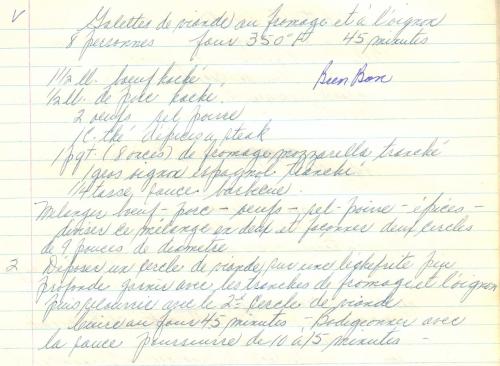 V Galettes de viande au fromage et à l'oignon
8 personnes four 350° F 45 minutes
1 1/2 lb. boeuf haché
Bien Bon
1/2 lb. de porc haché
2 oeufs sel poivre
1 c. thé d'épices à steak
1 pqt. (8 onces) de fromage mozzarella tranché
1 gros oignon espagnol tranché
1/4 tasse sauce barbecue.
Mélanger boeuf - porc - oeufs - sel - poivre - épices -
diviser ce mélange en deux et façonner deux cercles
de 9 pouces de diamètre
2 Déposer un cercle de viande sur une lèchefrite peu
profonde garnir avec les tranches de fromage et l'oignon
puis recouvrir avec le 2e cercle de viande
Cuire au four 45 minutes - Badigeonner avec
la sauce poursuivre de 10 à 15 minutes -